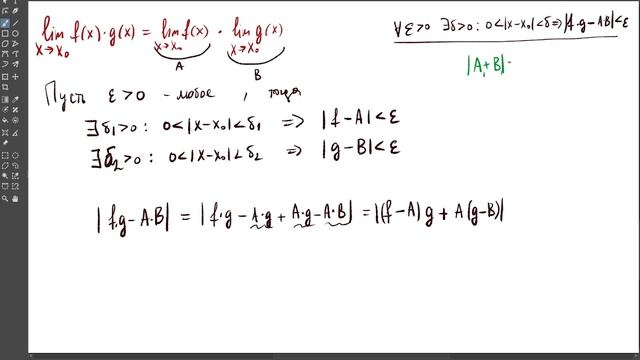 lim f(x)·g(x) = lim f(x) · lim g(x)
x→x₀ x→x₀ x→x₀
A B
∀ε>0 ∃δ>0 : 0<|x-x₀|<δ ⇒ |f·g-AB|<ε
|A₁+B|·
Пусть ε>0 - любое , тогда
∃δ₁>0 : 0<|x-x₀|<δ₁ ⇒ |f-A|<ε
∃δ₂>0 : 0<|x-x₀|<δ₂ ⇒ |g-B|<ε
|f·g-A·B| = |f·g-A·g+A·g-A·B| = |(f-A)g+A(g-B)|